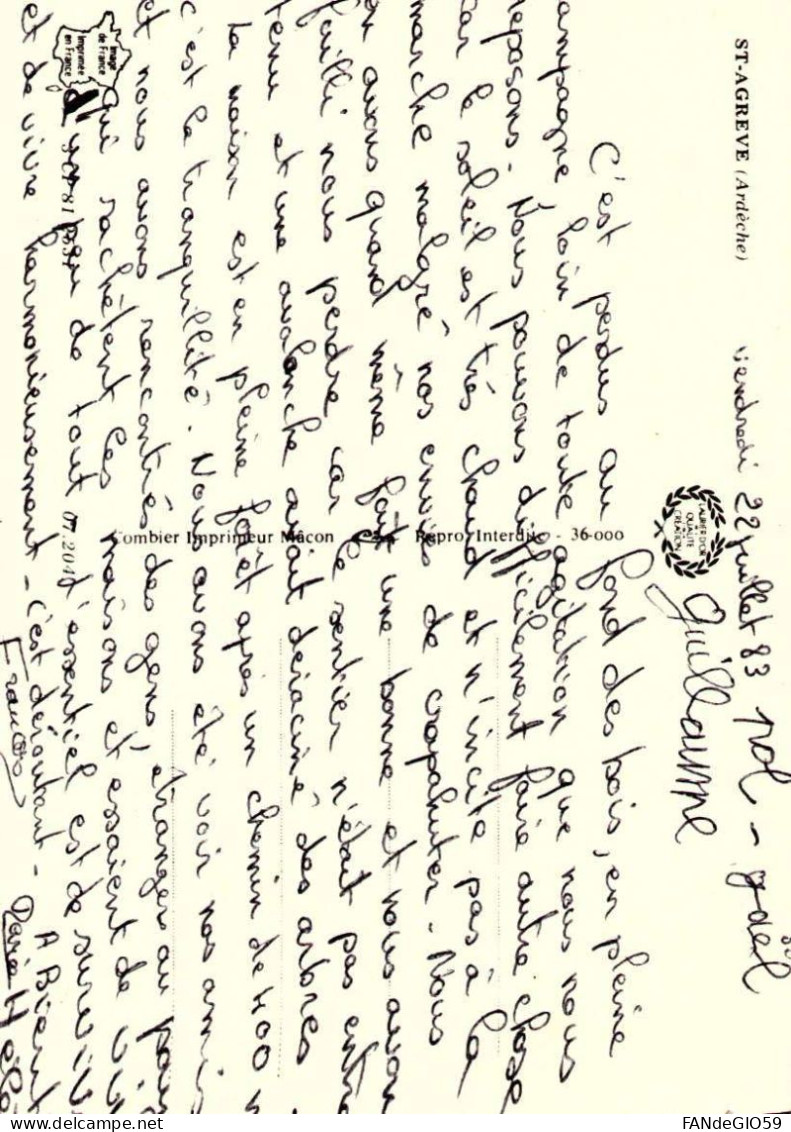 ST-AGREVE (Ardèche)
vendredi 22 juillet 83 pol - gaël
Guillaume
LAURIER D'OR
QUALITÉ
CRÉATION
C'est perdus au fond des bois, en pleine
ampagne loin de toute agitation que nous nous
eposons. Nous pouvons difficilement faire autre chose
car le soleil est très chaud et n'incite pas à la
marche malgré nos envies de crapahuter. Nous
en avons quand même fait une bonne et nous avon
failli nous perdre car le sentier n'était pas entre
tenu et une avalanche avait déraciné des arbres
la maison est en pleine forêt après un chemin de 400 m
c'est la tranquillité. Nous avons été voir nos amis
et nous avons rencontrés des gens, étranges au pour
qui rachètent les maisons et essaient de viv
d'un peu de tout l'essentiel est de surviv
et de vivre harmonieusement - c'est déroutant -
A Bient
Combier Imprimeur Mâcon
Repro. Interdite - 36-000
Image
de France
Imprimée
en France
FANdeGIO59